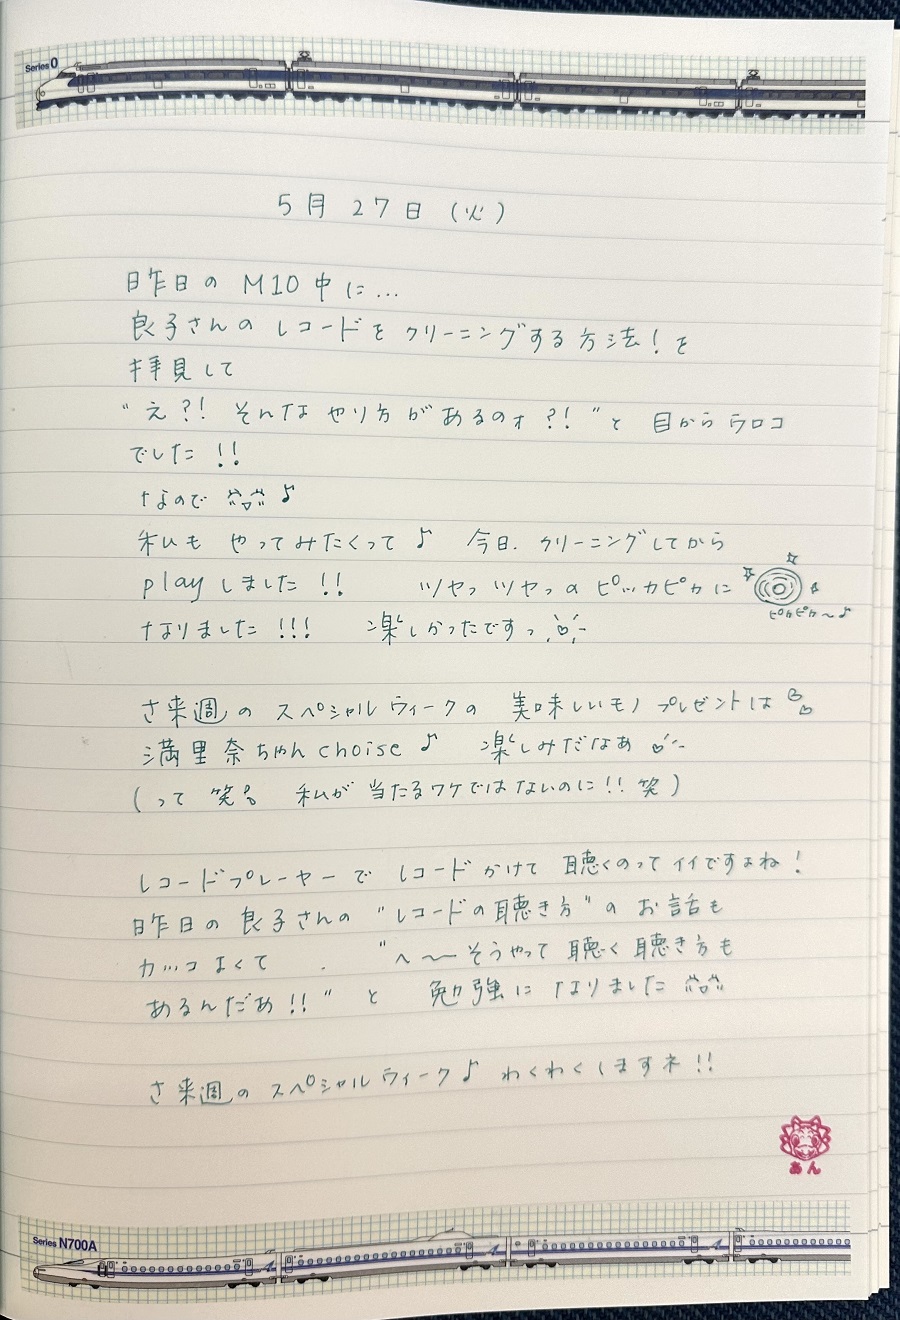 Series 0
5月27日(火)
昨日の M10中に…
良子さんの レコードを クリーニングする方法!を
拝見して
"え?! そんな やり方が あるのォ?!"と 目から ウロコ
でした!!
なので ♪
私も やってみたくって♪ 今日.クリーニングしてから
playしました!! ツヤっツヤっの ピッカピカに
ピカピカ〜♪
なりました!!! 楽しかったですっ
さ来週の スペシャルウィークの 美味しいモノ プレゼントは
満里奈ちゃん choise ♪ 楽しみだなぁ
(って 笑。 私が 当たるワケではないのに!! 笑)
レコードプレーヤーで レコードかけて 聴くのって イイですよね!
昨日の 良子さんの "レコードの聴き方"の お話も
カッコよくて . "へ〜〜そうやって 聴く 聴き方も
あるんだぁ!!" と 勉強になりました
さ来週の スペシャルウィーク♪ わくわくしますネ!!
あん
Series N700A